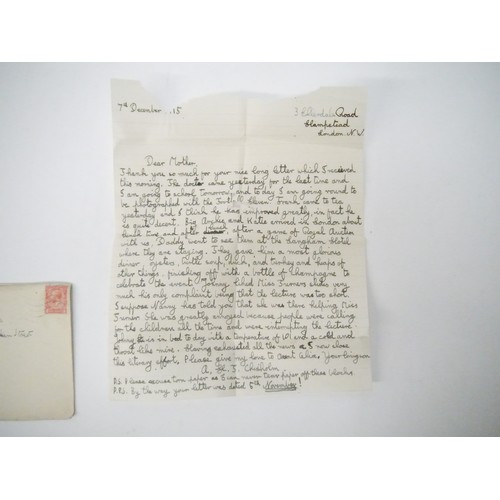 7th December. 15
3 Ellerdale Road
Hampstead
London. N.W.
Dear Mother,
Thank you so much for your nice long letter which I received
this morning. The doctor came yesterday for the last time and
I am going to school tomorrow, and to day I am going round to
be photographed with the First Eleven. Frank came to tea
yesterday and I think he has improved greatly, in fact he
is quite decent. Big and Katie arrived in London about
time and after after a game of Royal Auction
with us. Daddy went to see them at the Langham Hotel
where they are staying. They gave him a most glorious
dinner. Oysters, turtle soup, duck, and turkey and heaps of
other things, finishing off with a bottle of champagne to
celebrate the event. liked Miss slides very
much his only complaint being that the lecture was too short.
I suppose Nancy has told you that she was there helping Miss
She was greatly annoyed because people were calling
for the children all the time and were interrupting the lecture.
is in bed to day with a temperature of 101 and a cold and
throat like mine. Having exhausted all the news I now close
this literary effort. Please give my love to Aunt Your loving son
A. Chisholm
P.S. Please excuse torn paper as I can never tear paper off these blocks
P.P.S. By the way your letter was dated 5th November!